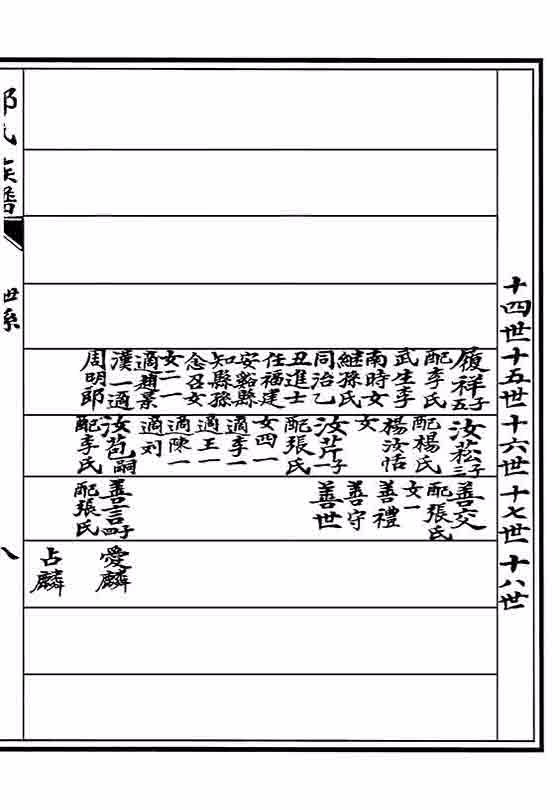 十四世
十五世
十六世
十七世
十八世
履祥子五
配李氏
武生李
南時女
継孫氏
同治乙
丑進士
任福建
安谿縣
知縣孫
念召女
女二一
適趙景
漢一適
周明郎
汝菘子三
配楊氏
楊汝恬
女
汝芹子一
配張氏
女四一
適李一
適王一
適陳一
適刘
汝苞嗣
配李氏
善交
配張氏
女一
善禮
善守
善世
善言子四
配張氏
愛麟
占麟
氏族譜
世系
八